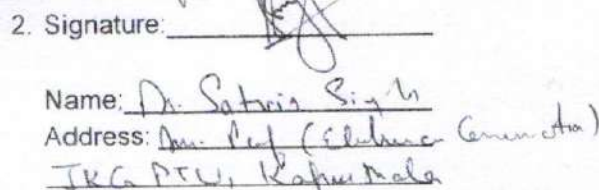 2. Signature:
Name: Dr. Satvir Singh
Address: Ass. Prof (Electronics Communication)
IKG PTU, Kapurthala